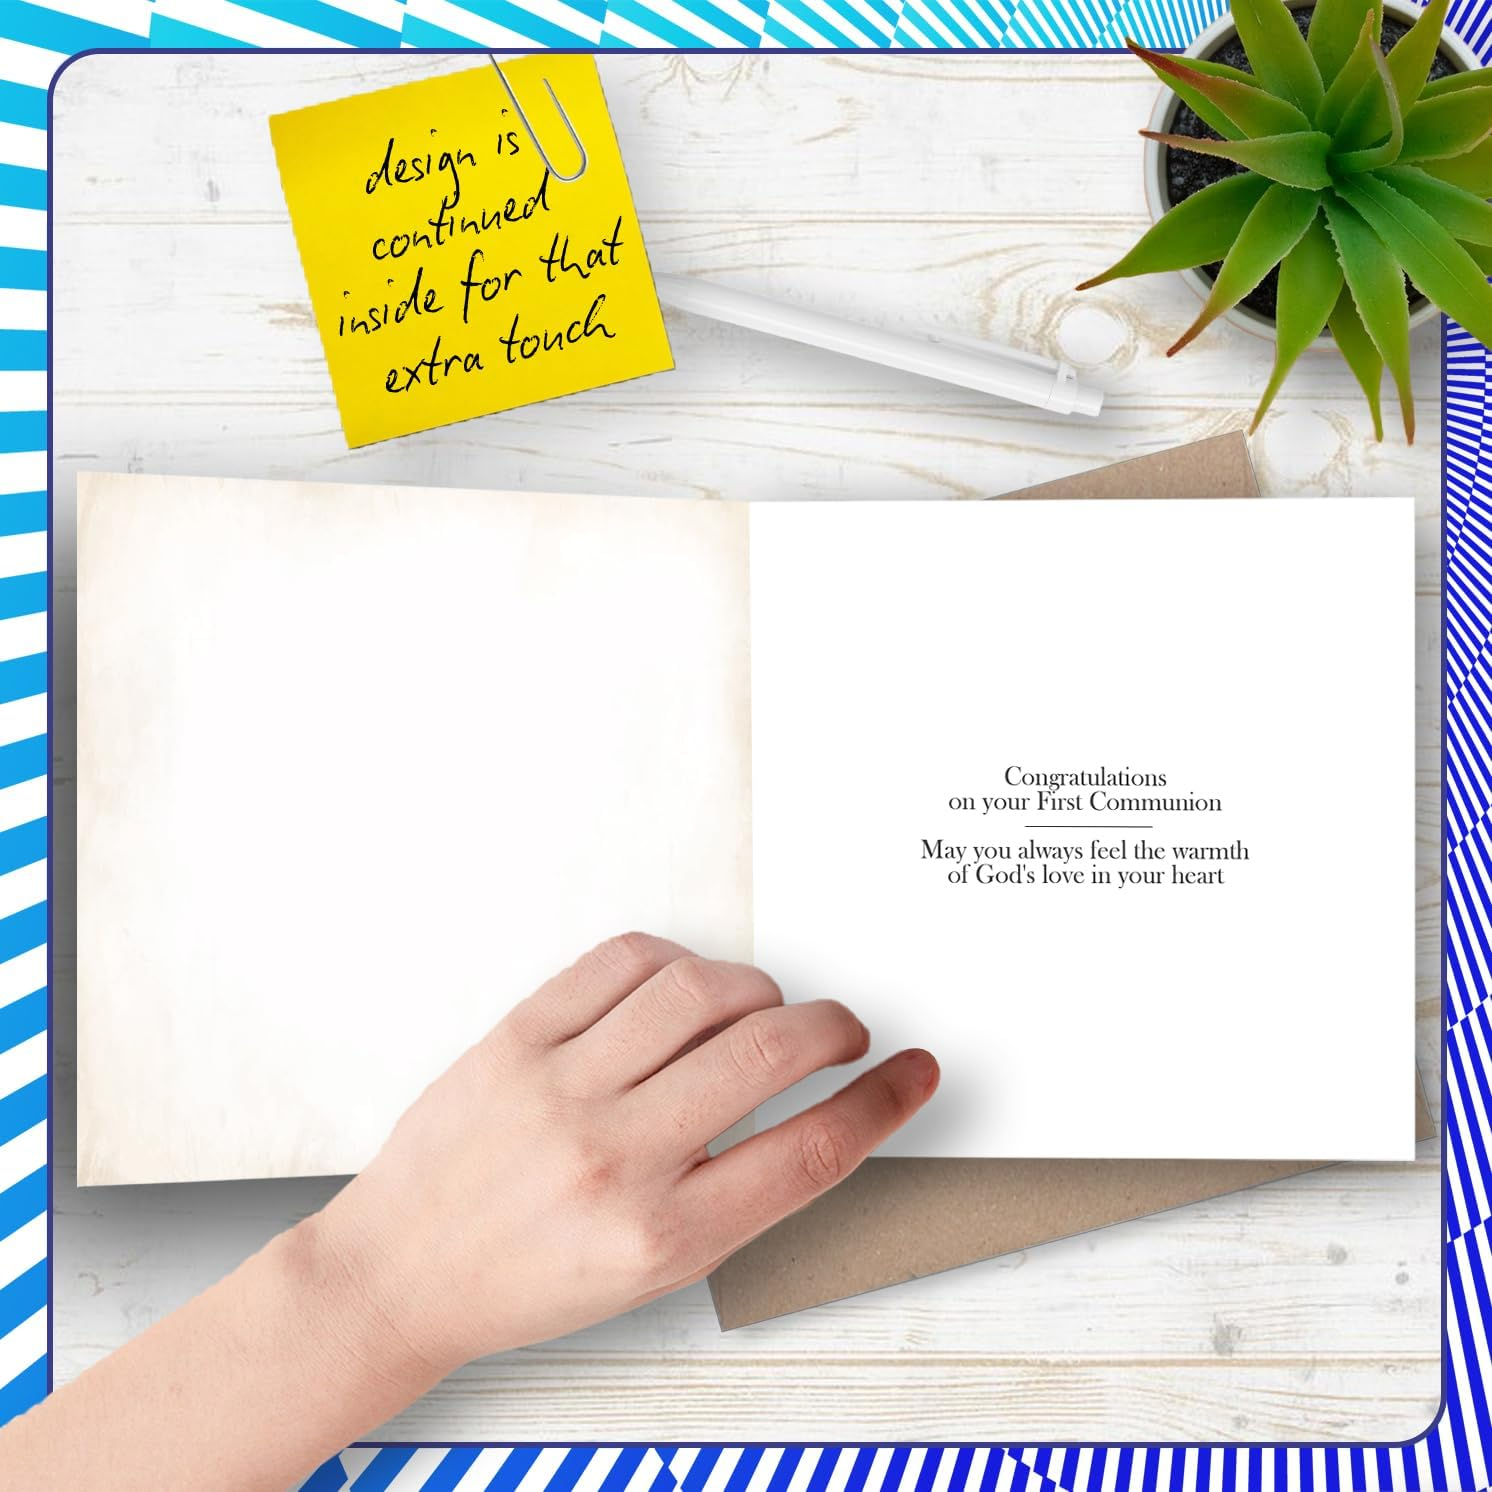 design is
continued
inside for that
extra touch
Congratulations
on your First Communion
May you always feel the warmth
of God's love in your heart